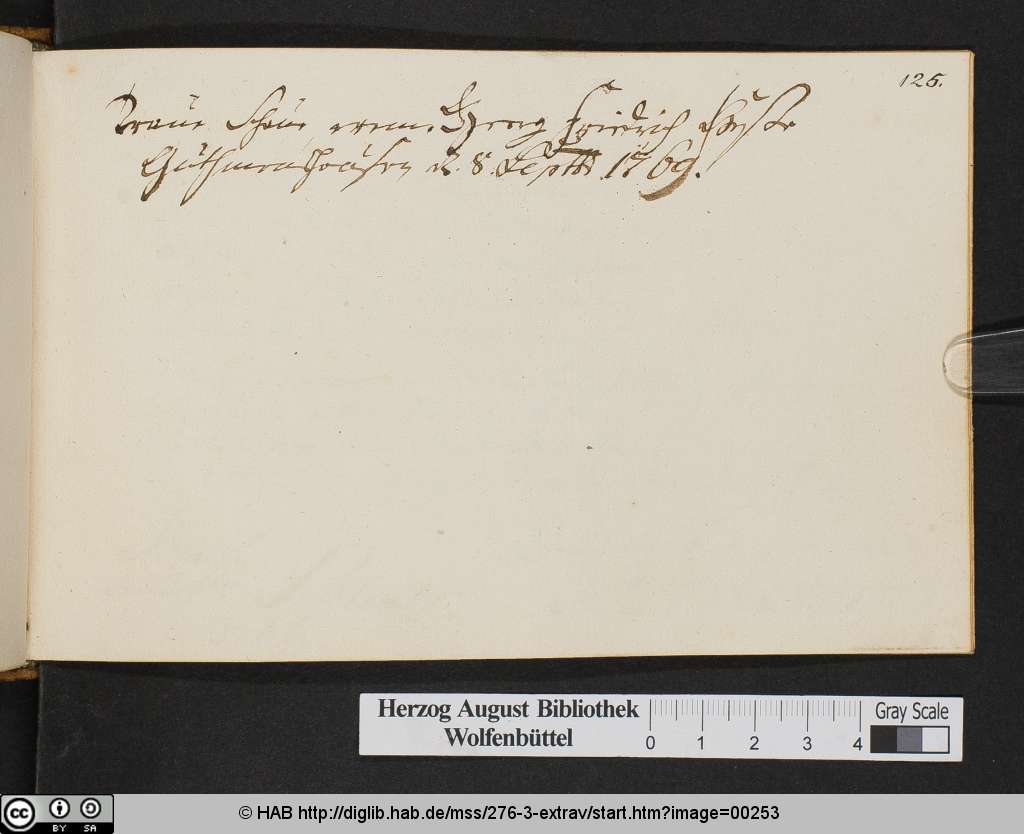 125.
Traue Schaue wem. Georg Friedrich
Guthmanshausen d. 8. Septbr. 1769.
Herzog August Bibliothek
Wolfenbüttel
0 1 2 3 4
Gray Scale
cc BY SA
© HAB http://diglib.hab.de/mss/276-3-extrav/start.htm?image=00253